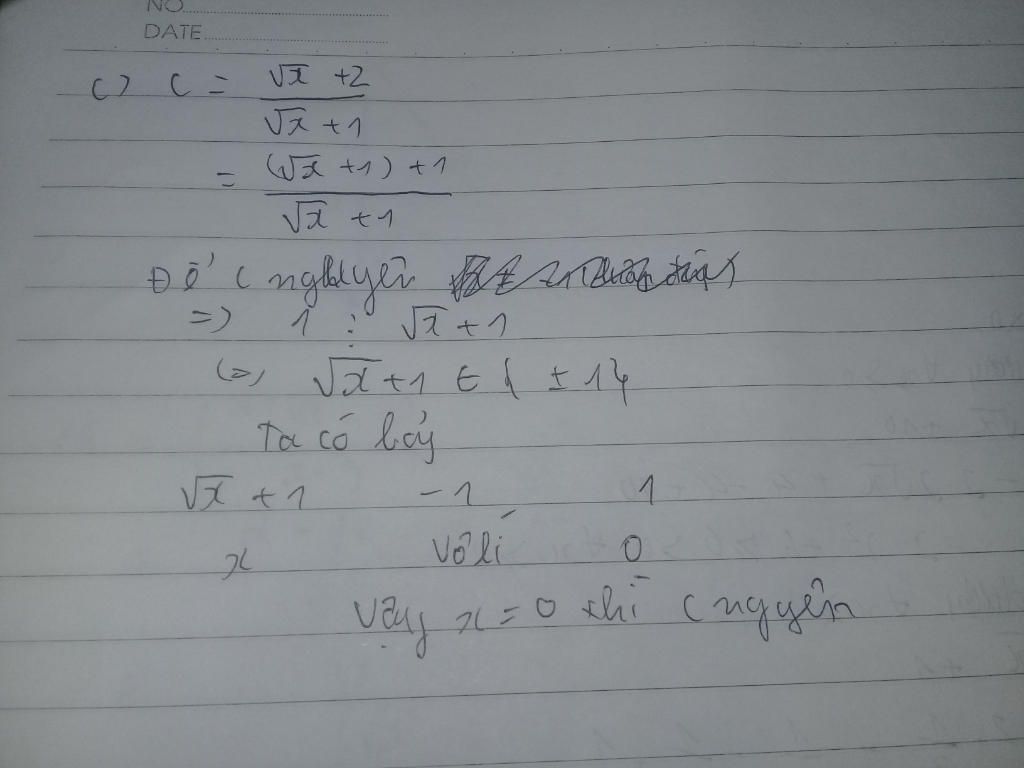 NO
DATE
c) C = √x +2 / √x +1
= (√x +1) +1 / √x +1
Để C nguyên
=> 1 ⋮ √x +1
<=> √x +1 ∈ { ±1}
Ta có bảy
√x +1 -1 1
x Vô lí 0
Vậy x = 0 thì C nguyên